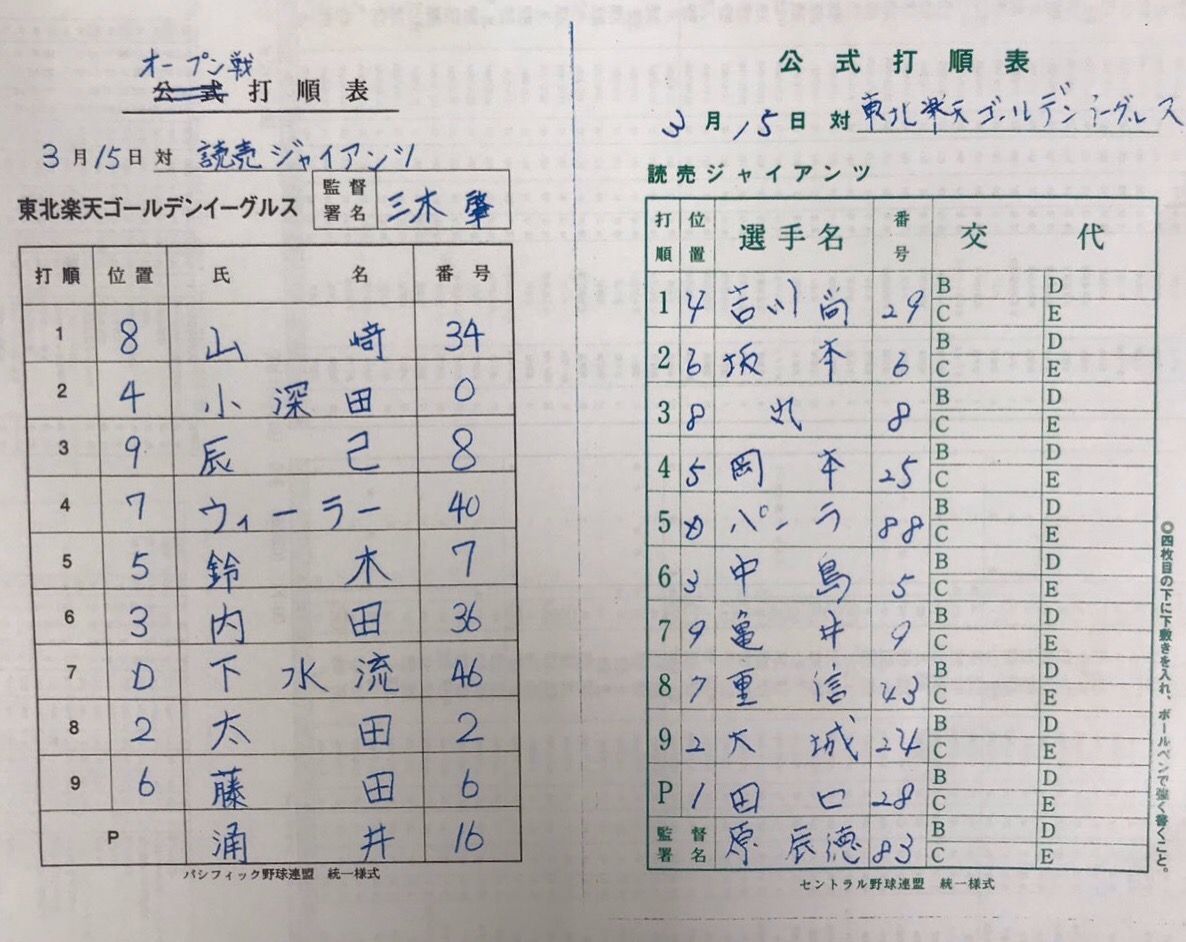 オープン戦
公式打順表
3月15日対 読売ジャイアンツ
東北楽天ゴールデンイーグルス 監督署名 三木肇
打順 位置 氏名 番号
1 8 山﨑 34
2 4 小深田 0
3 9 辰己 8
4 7 ウィーラー 40
5 5 鈴木 7
6 3 内田 36
7 D 下水流 46
8 2 太田 2
9 6 藤田 6
P 涌井 16
パシフィック野球連盟 統一様式
公式打順表
3月15日対 東北楽天ゴールデンイーグルス
読売ジャイアンツ
打順 位置 選手名 番号 交代
1 4 吉川尚 29 B C D E
2 6 坂本 6 B C D E
3 8 丸 8 B C D E
4 5 岡本 25 B C D E
5 D パーラ 88 B C D E
6 3 中島 5 B C D E
7 9 亀井 9 B C D E
8 7 重信 43 B C D E
9 2 大城 24 B C D E
P 1 田口 28 B C D E
監督署名 原辰徳 83 B C D E
セントラル野球連盟 統一様式
◎四枚目の下に下敷きを入れ、ボールペンで強く書くこと。